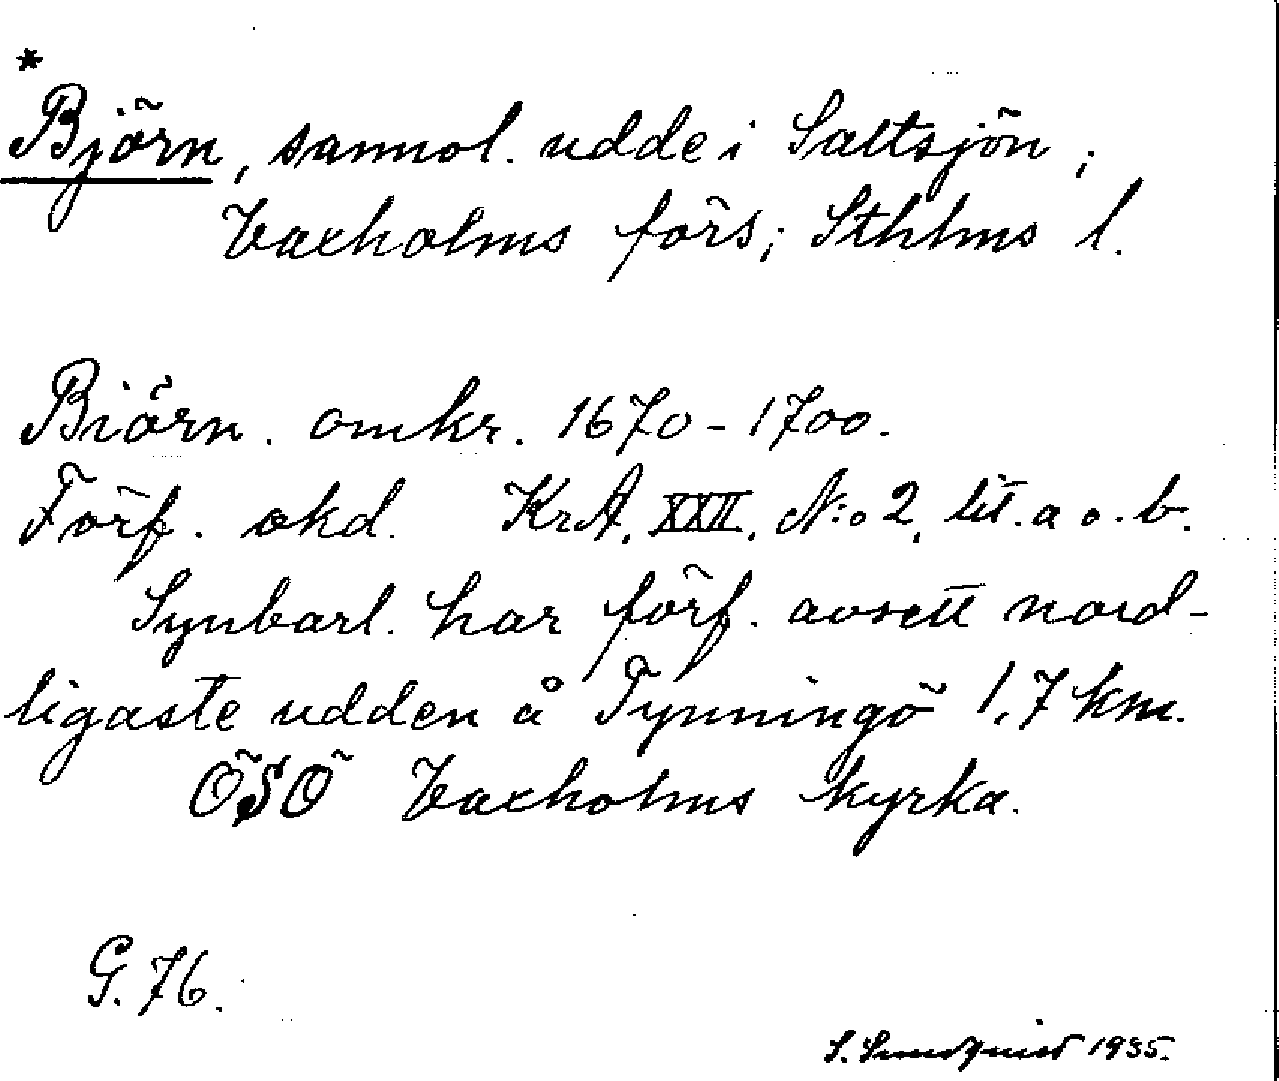 *
Björn, sannol. udde i Saltsjön;
Vaxholms förs; Sthlms l.
Biörn. omkr. 1670-1700.
Förf. okd. KrA. XXII. N:o 2. lit. a o. b.
Synbarl. har förf. avsett nord-
ligaste udden å Tynningö 1.7 km.
ÖSÖ Vaxholms kyrka.
G. 76.
S. Sundquist 1935.